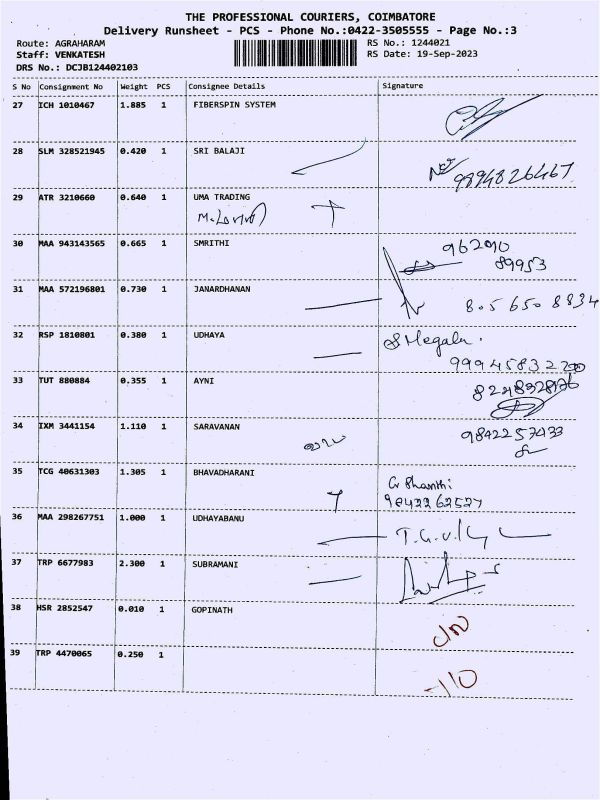 THE PROFESSIONAL COURIERS, COIMBATORE
Delivery Runsheet - PCS - Phone No.:0422-3505555 - Page No.:3
Route: AGRAHARAM RS No.: 1244021
Staff: VENKATESH RS Date: 19-Sep-2023
DRS No.: DCJB124402103
S No Consignment No Weight PCS Consignee Details Signature
27 ICH 1010467 1.885 1 FIBERSPIN SYSTEM
28 SLM 328521945 0.420 1 SRI BALAJI
9894826467
29 ATR 3210660 0.640 1 UMA TRADING
30 MAA 943143565 0.665 1 SMRITHI 96290
89953
31 MAA 572196801 0.730 1 JANARDHANAN
805650 8834
32 RSP 1810801 0.380 1 UDHAYA S Megala.
33 TUT 880884 0.355 1 AYNI
34 IXM 3441154 1.110 1 SARAVANAN 9842257433
35 TCG 40631303 1.305 1 BHAVADHARANI G Shanthi
9842262527
36 MAA 298267751 1.000 1 UDHAYABANU
37 TRP 6677983 2.300 1 SUBRAMANI
38 HSR 2852547 0.010 1 GOPINATH
39 TRP 4470065 0.250 1